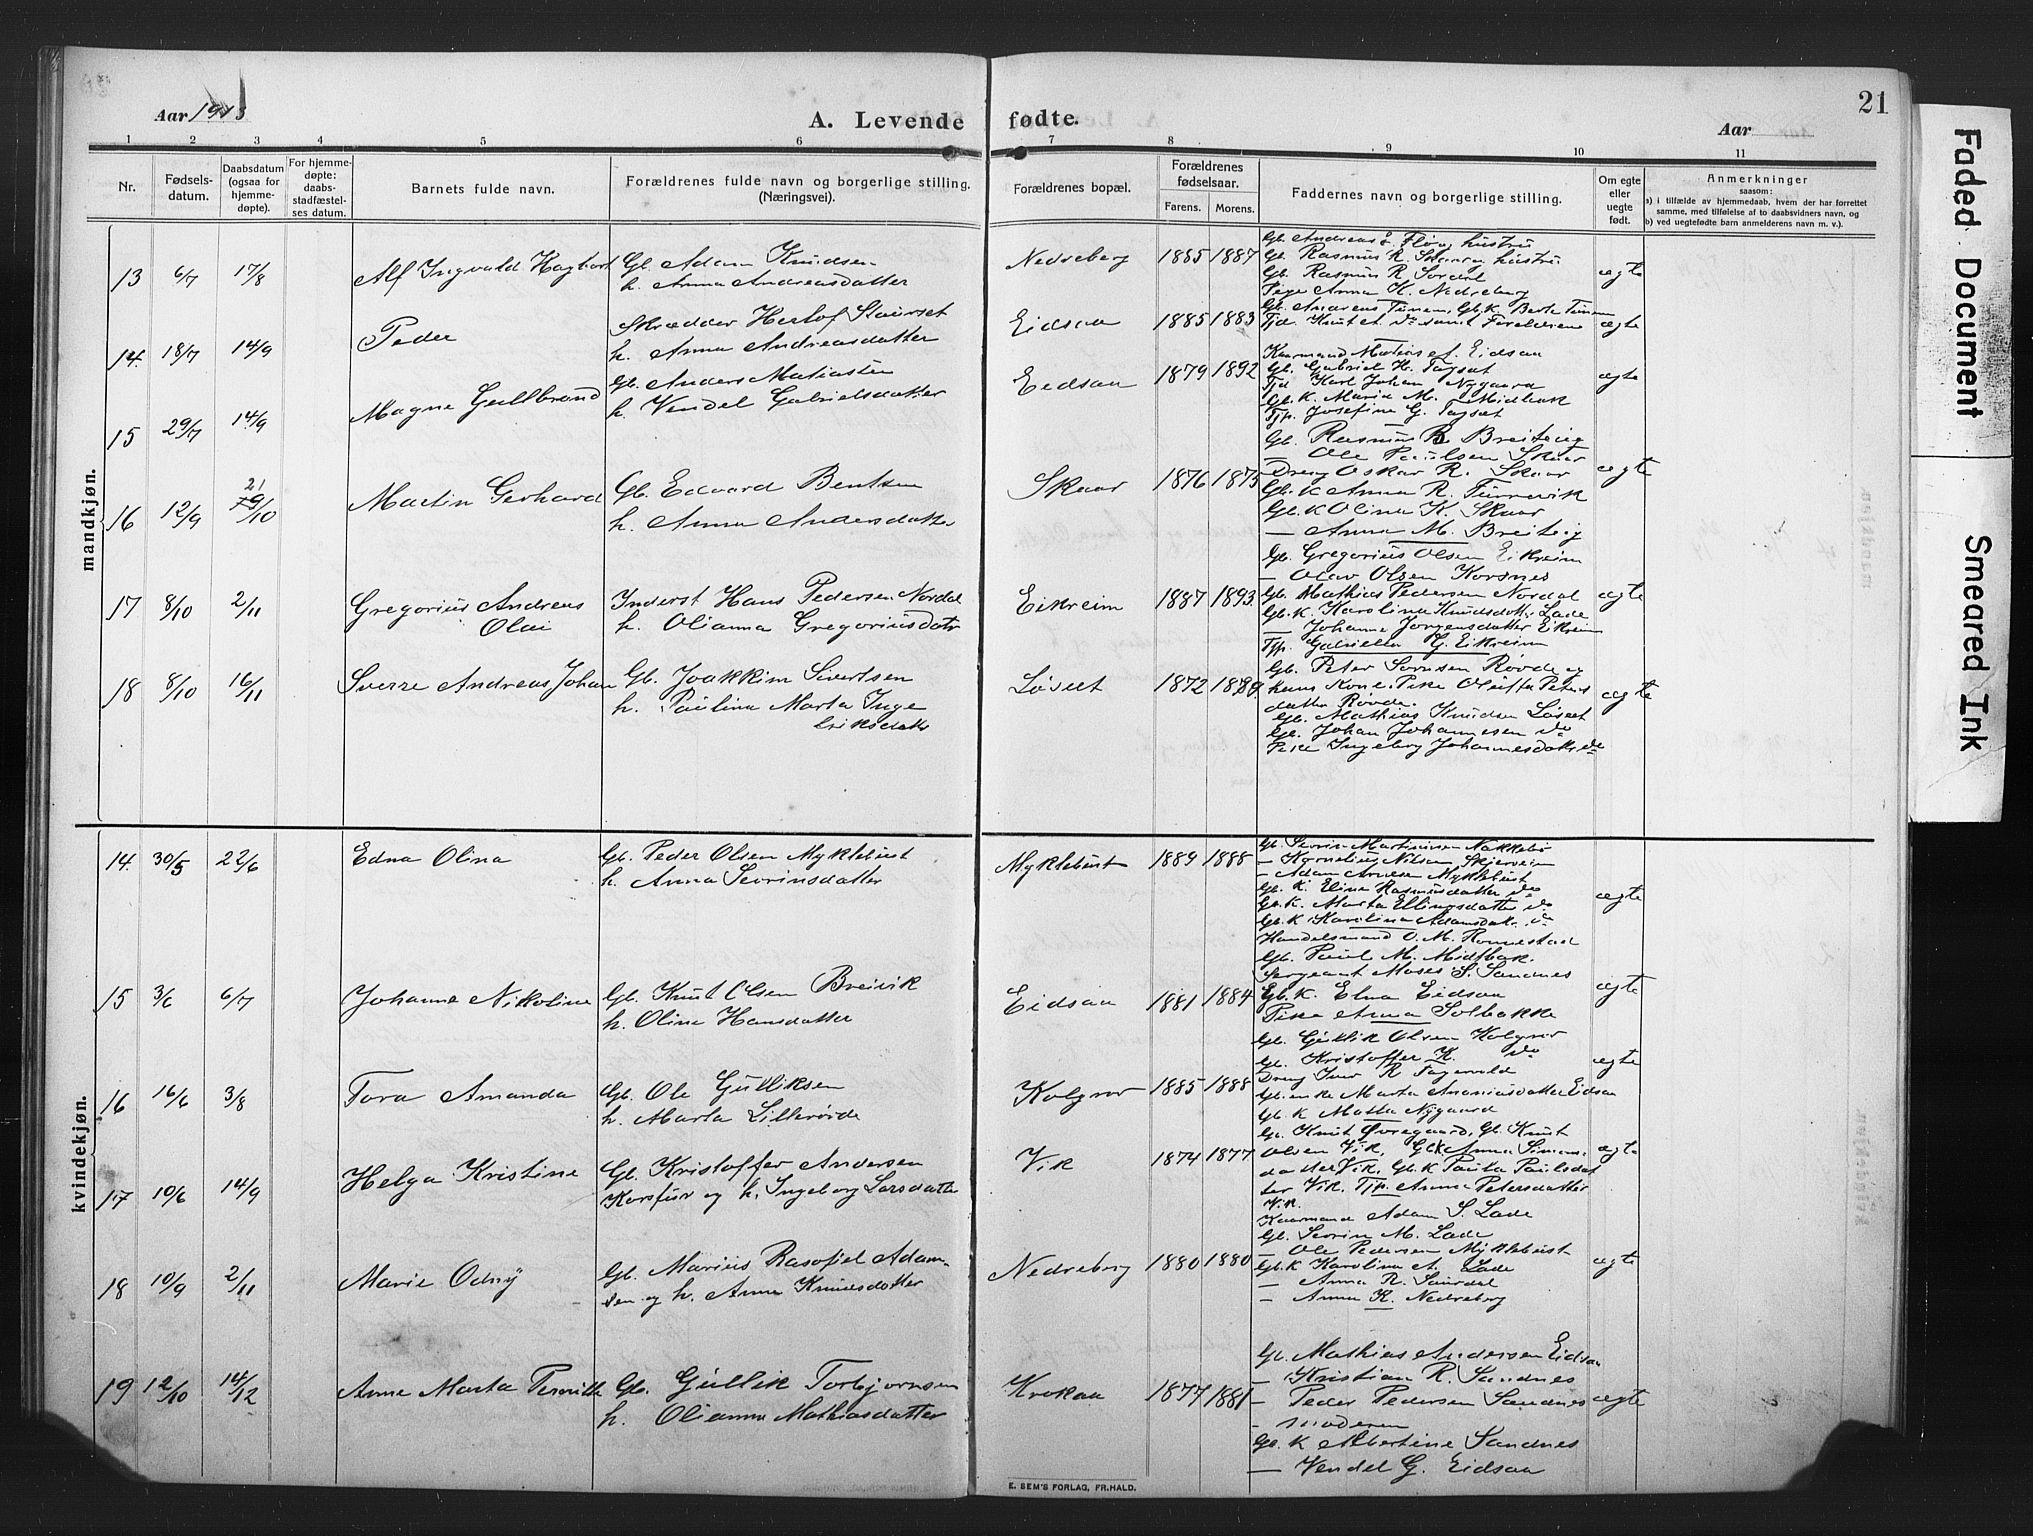 21
Aar 1913
A. Levende fødte.
Aar
1 2 3 4 5 6 7 8 9 10 11
Nr.
Fødsels-
datum.
Daabsdatum
(ogsaa for
hjemme-
døpte).
For hjemme-
døpte:
daabs-
stadfæstel-
ses datum.
Barnets fulde navn.
Forældrenes fulde navn og borgerlige stilling.
(Næringsvei).
Forældrenes bopæl.
Forældrenes
fødselsaar.
Farens. Morens.
Faddernes navn og borgerlige stilling.
Om egte
eller
uegte
født.
Anmerkninger
saasom:
a) i tilfælde av hjemmedaab, hvem der har forrettet
samme, med tilføielse af to daabsvidners navn, og
b) ved uegtefødte barn anmelderens navn m. v.).
mandkjøn.
13 6/7 17/8 Alf Ingvald Hagbart
Gb. Adam Knudsen
h. Anna Andreasdatter
Nedreberg 1885 1887
Gb. Andreas Flø og hustru
Gb. Rasmus R. hustru
Gb. Rasmus R. Sørdal
Pige Anna K. Nedreberg
ægte
14. 18/7 14/9 Peder
Skrædder Herlof Staurset
h. Anna Andreasdatter
Eidsaa 1885 1883
Gb. Andreas Tunem, Gb.K. Berte Tunem
Tjd. Knut samt Forældrene
ægte
15 29/7 14/9 Magne Gullbrand
Gb. Anders Matiasen
h. Vendel Gabrielsdatter
Eidsaa 1879 1892
Kaarmand Martias A. Eidsaa
Gb. Gabriel H. Fagsæt
Tjd Karl Johan Nygaard
Gb. K. Marie M. Midbak
Tjp. Josefine G. Fagsæt
ægte
16 12/9 21
19/10 Martin Gerhard
Gb. Edvard Bentsen
h. Anna Andersdatter
Skaar 1876 1875
Gb. Rasmus B Breiteig
— Ole Paulsen Skaar
Dreng Oskar R. Skaar
Gb. K Anna R. Tunnevik
Gb. K Olina K. Skaar
— Anna M. Breiteig
ægte
17 8/10 2/11 Gregorius Andreas
Olai
Inderst Hans Pedersen Nordal
h. Olianna Gregoriusdatr
Eikreim 1887 1893
Gb. Gregorius Olsen Eikreim
— Olav Olsen Korsnes
Gb. Mathias Pedersen Nordal
Gb. K. Karolina Knudsdottr Lade
— Johanne Jørgensdatter Eikreim
Tjp. Gabriella G. Eikreim
ægte
18 8/10 16/11 Sverre Andreas Johan
Gb. Joakkim Sivertsen
h. Paulina Marta Inge
Eriksdatter
Løset 1872 1879
Gb. Peter Sørnsen Rovde og
hans Kone. Pike Olufta Peters
datter Rovde.
Gb. Mathias Knudsen Løset
Gb. Johan Johannesen do
Pike Ingeborg Johannesdatr do
ægte
kvindekjøn.
14. 30/5 22/6 Edna Olina
Gb. Peder Olsen Myklebust
h. Anna Sevrinsdatter
Myklebust 1889 1888
Gb. Sevrin Martinusen Nakkebø
— Kornelius Nilsen Skjerveim
— Adam Arnesen Myklebust
Gb. K. Eline Rasmusdatter do
Gb. K. Marta Ellingsdatter do
Gb. K Karolina Adamsdatr. do
ægte
15 3/6 6/7 Johanne Nikoline
Gb. Knut Olsen Breivik
h. Oline Hansdatter
Eidsaa 1881 1884
Handelsmand O. M. Rønnestad
Gb. Paul M. Midtbak.
Sergeant Moses S. Sandnes
Gb. K. Elna Eidsaa
Pike Anna Solbakke
ægte
16 16/6 3/8 Tora Amanda
Gb. Ole Gulliksen
h. Marta Lillerøvde
Kolgrov 1885 1888
Gb. Gullik Olsen Kolgrov
Gb. Kristoffer K. do
Dreng Iver R Fagervold
Gb. enke Marta Ananiasdatter Eidsaa
Gb. K Matta Nygaard
ægte
17 10/6 14/9 Helga Kristine
Gb. Kristoffer Andersen
Korsfur og h. Ingeborg Larsdatte
Vik 1874 1877
Gb. Knut Øvregaard, Gb. Knut
Olsen Vik, Gb.K Anna Simons
datter Vik, Gb. K Paula Paulsdat
ter Vik. Tjp. Anna Petersdatter
Vik.
ægte
18 10/9 2/11 Marie Odny
Gb. Marius Rasofiel Adam-
sen og h. Anna Knudsdatter
Nedreberg 1880 1880
Kaarmand Adam S. Lade
Gb. Sevrin M. Lade
— Ole Pedersen Myklebust
Gb. K Karolina A. Lade
— Anna R. Saurdal
— Anna K. Nedreberg
ægte
19 12/10 14/12 Anna Marta Pernille
Gb. Gullik Torbjørnsen
h. Olianna Mathiasdatter
Krokaa 1877 1881
Gb. Mathias Andersen Eidsaa
— Kristian R. Sandnes
— Peder Pedersen Sandnes
— moderen
Gb. K Albertine Sandnes
— Vendel G. Eidsaa
ægte
E. SEM'S FORLAG, FR.HALD.
Faded Document
Smeared Ink